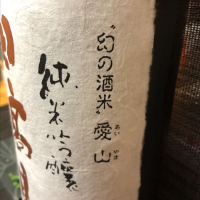 〝幻の酒米〟愛山
あい やま
純米吟醸